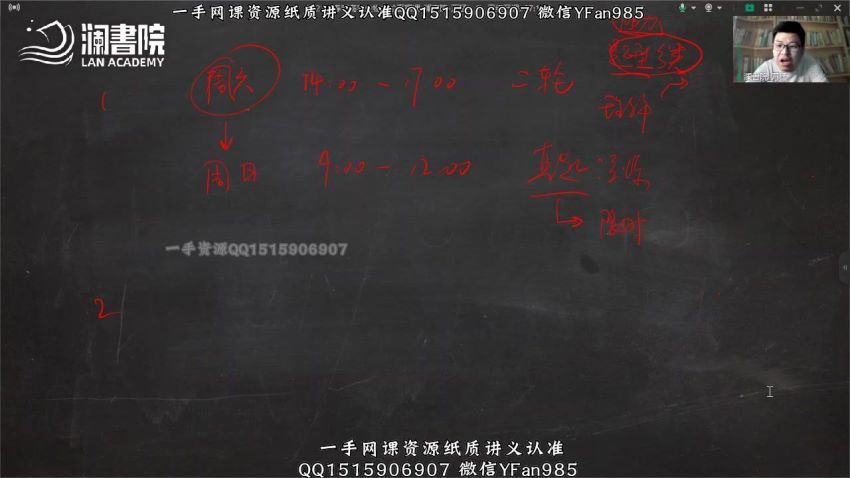 一手网课资源纸质讲义认准QQ1515906907 微信YFan985
澜書院
LAN ACADEMY
1 周六 14:00-17:00 二轮
周日 9:00-12:00 真题
限时
一手资源QQ1515906907
2
一手网课资源纸质讲义认准
QQ1515906907 微信YFan985